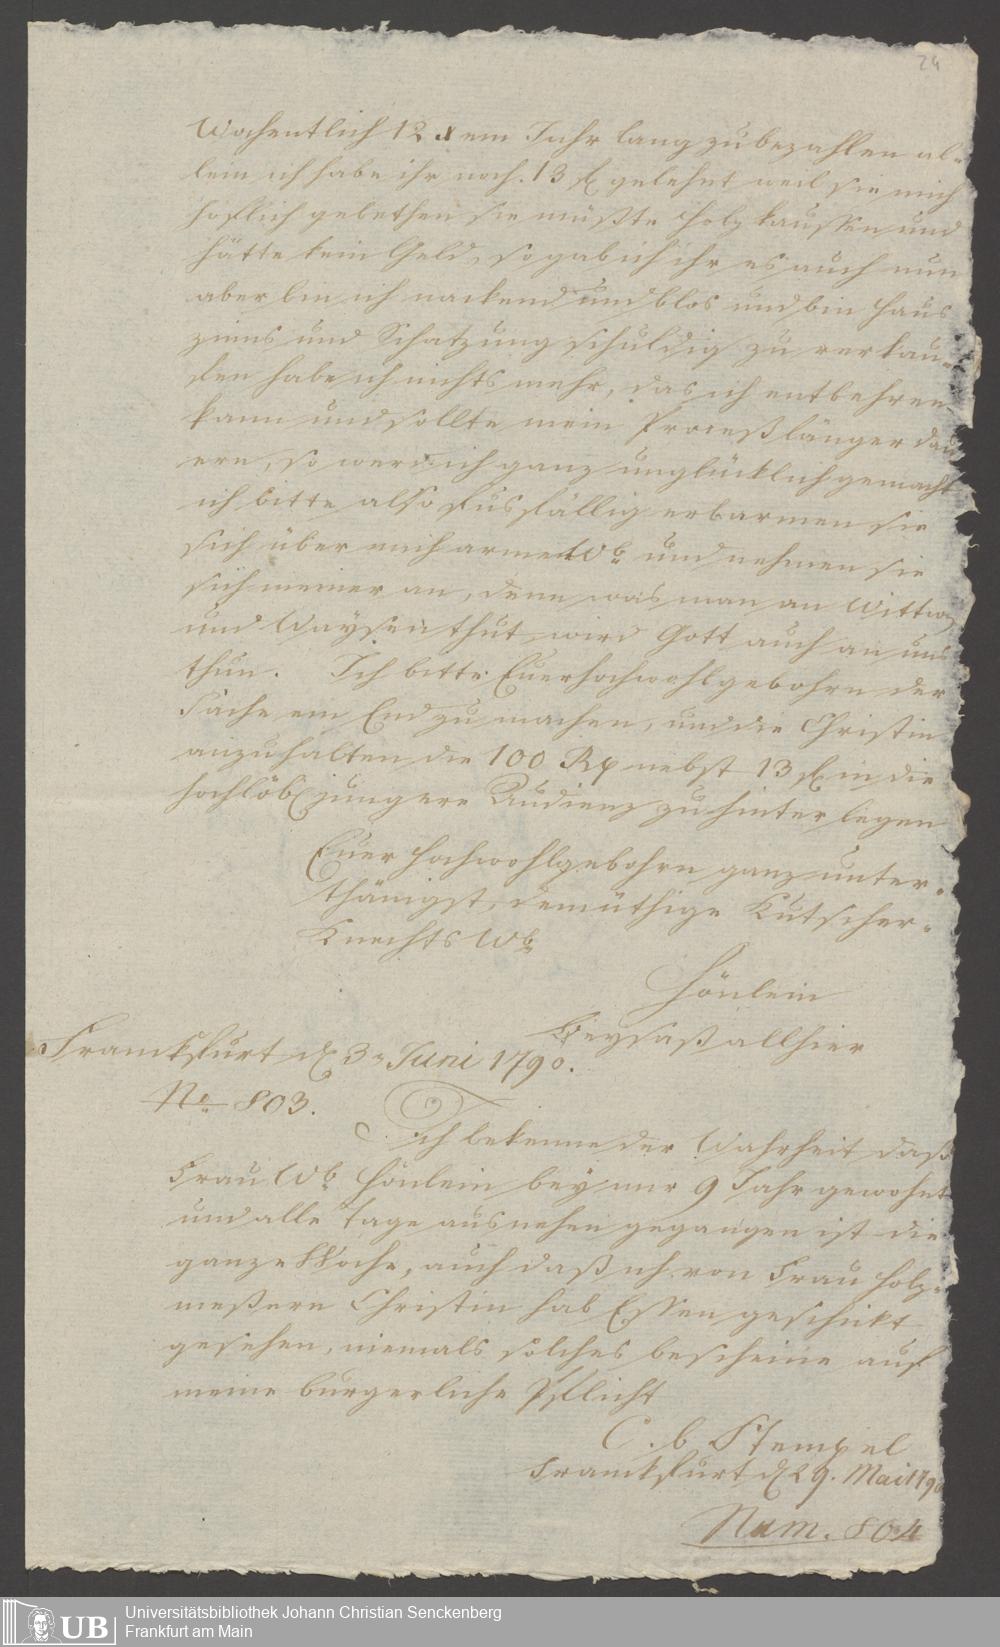 24
Wochentlich 12 x ein Jahr lang zubezahlen al-
lein ich habe ihr noch 13 fl gelehnt weil sie mich
höflich gebethen sie müßte Holz kauffen und
hätte kein Geld, so gab ich ihr es auch nun
aber bin ich nackend und blos und bin Haus
zinns und Schatzung schuldig zu verkau-
fen habe ich nichts mehr, das ich entbehren
kann und sollte mein Proceß länger dau
ern, so werd ich ganz unglücklich gemacht
ich bitte also fusfällig erbarmen sie
sich über mich arme Wb und nehmen sie
sich meiner an, denn was man an Wittw
und Waysen thut wird Gott auch an uns
thun. Ich bitte Euerhochwohlgebohrn der
Sache ein End zu machen, und die Christin
anzuhalten die 100 Rp nebst 13 fl in die
hochlöbl jungere Audienz zu hinter legen
Euer Hochwohlgebohrn ganz unter-
thänigst, demüthige Kutscher-
Knechts Wb
Hönlein
Beysaß allhier
Franckfurt d 3 Juni 1790.
No 803.
Ich bekenne der Wahrheit daß
Frau Wb Hönlein bey mir 9 Jahr gewohnt
und alle Tage aus nehen gegangen ist die
ganze Woche, auch daß ich von Frau Holz-
meßern Christin hab Essen geschickt
gesehen, niemals solches bescheine auf
meine burgerliche Pflicht
C. b Stempel
Franckfurt d 29. Mai 1790
Num. 804
UB
Universitätsbibliothek Johann Christian Senckenberg
Frankfurt am Main